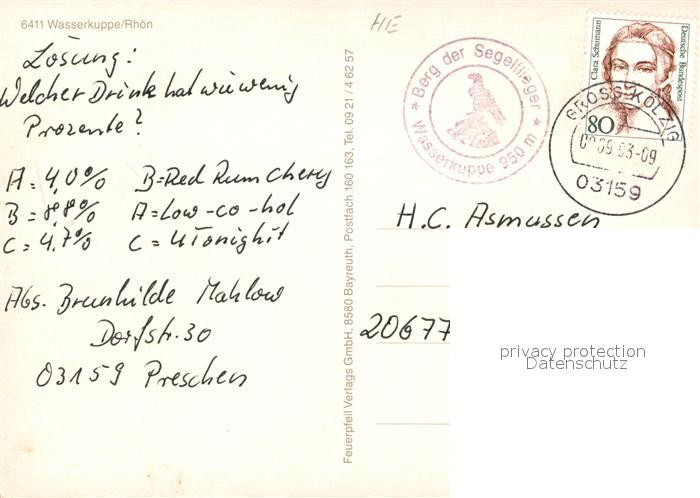 6411 Wasserkuppe/Rhön
Lösung:
Welcher Drink hat wieviewenig
Prozente?
A = 4,0% B = Red Rum Chery
B = 8,8% A = Low-co-hol
C = 4,7% C = U Tonight
Abs. Brunhilde Mahlow
Dorfstr. 30
03159 Preschen
Feuerpfeil Verlags GmbH, 8580 Bayreuth, Postfach 160 163, Tel. 09 21 / 4 62 57
HIE
* Berg der Segelflieger *
Wasserkuppe 950 m
Clara Schumann
Deutsche Bundespost
80
GROSS KÖLZIG
03159
H.C. Asmussen
20677
privacy protection
Datenschutz